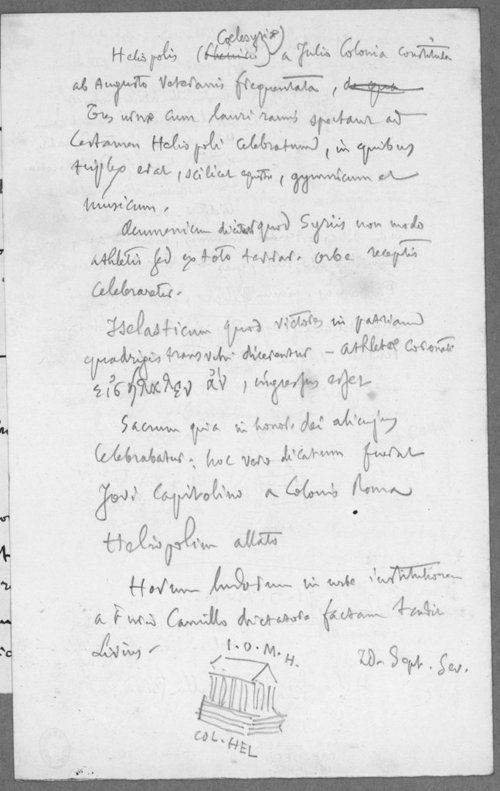 Coelesyriæ
Heliopolis (Pheniciæ) a Julio Colonia constituta
ab Augusto Veteranis frequentata, de qua
Tres urnæ cum lauri ramis spectant ad
Certamen Heliopoli celebratum, in quibus
triplex erat, scilicet equestre, gymnicum et
musicum.
Œcumenicum dicitur quod Syriis non modo
athletis sed ex toto terrar. orbe receptis
celebraretur.
Iselasticum quod victores in patriam
quadrigis transvehi dicerentur - athletæ coronati
, ingressus esset
Sacrum quia in honor. dei alicujus
Celebrabatur; hoc vero dicatum fuerat
Jovi Capitolino a Colonis Roma
Heliopolim allato
Horum ludorum in urbe institutionem
a Furio Camillo dictatore factam tradit
Livius.
I.O.M.H.
Sept. Sev.
COL.HEL